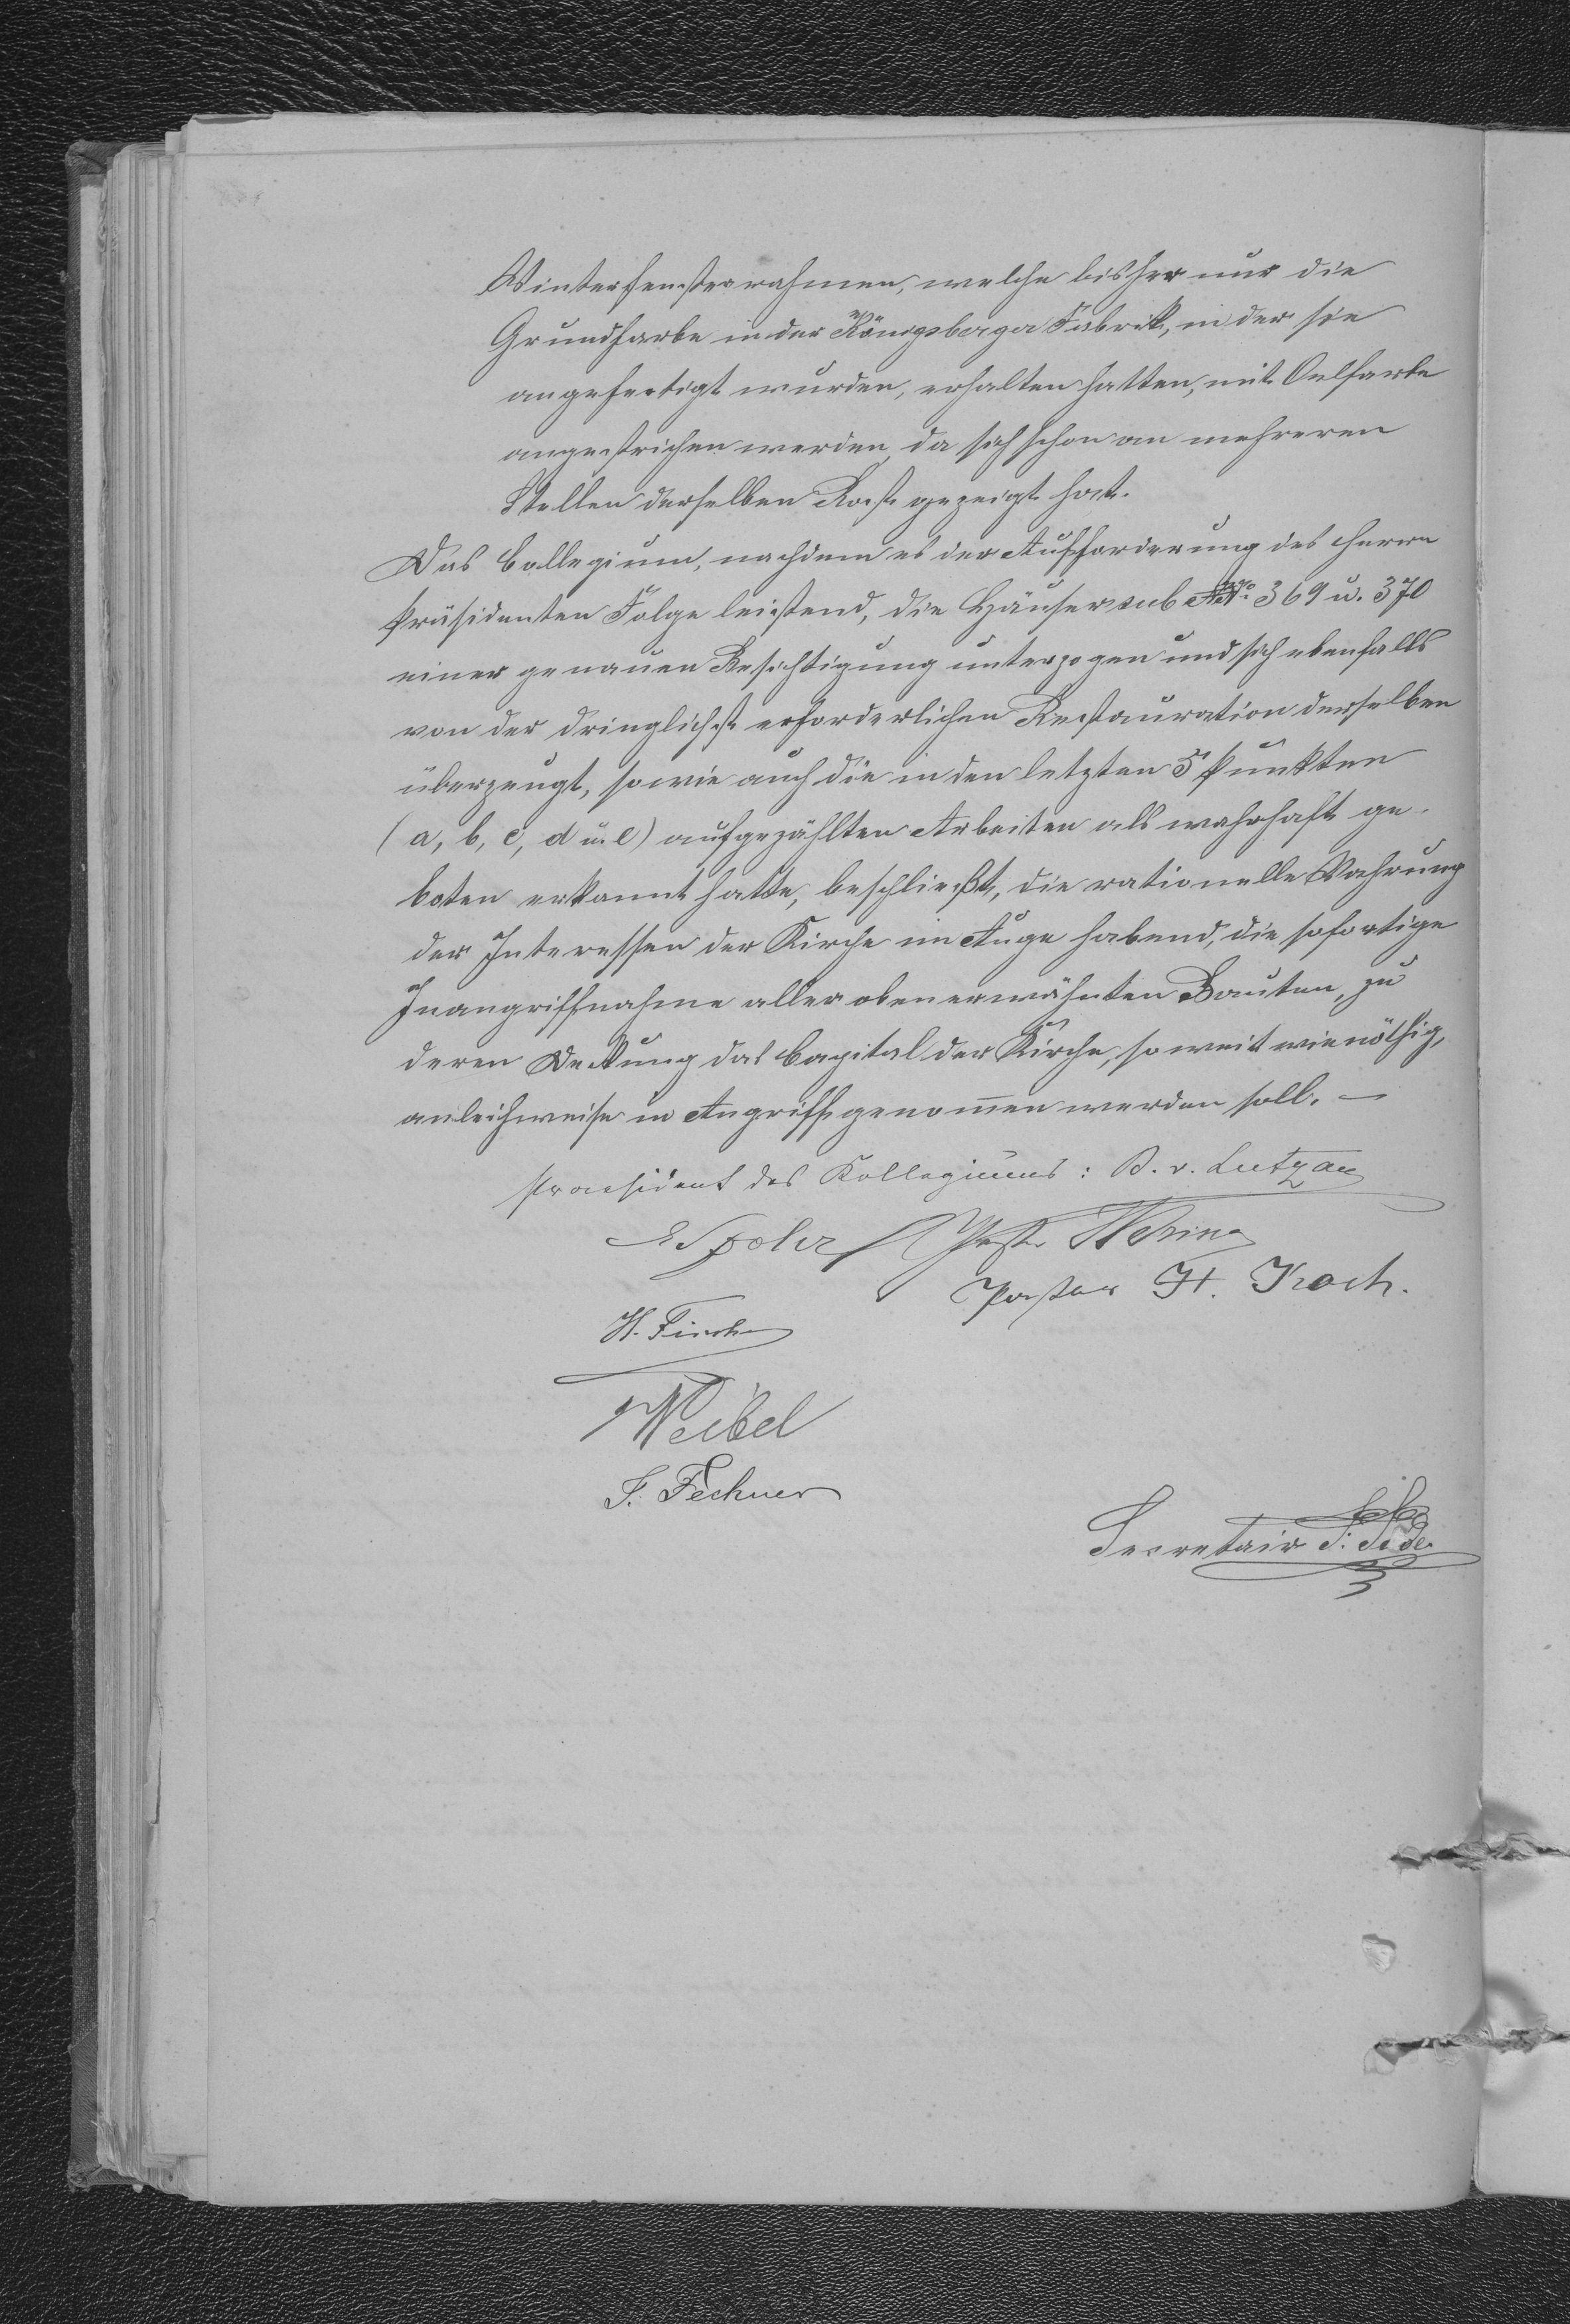 Winterfensterrahmen, welche bisher nur die
Grundfarbe in der Königsberger Fabrik, in der sie
angefertigt wurden, erhalten hatten, mit Oelfarbe
angestrichen werden, da sich schon an mehreren
Stellen derselben Rost gezeigt hat.
Das Collegium, nachdem es der Aufforderung des Herrn
Präsidenten Folge leistend, die Häuser sub NNo 369 u. 370
einer genauen Besichtigung unterzogen und sich ebenfalls
von der dringlichst erforderlichen Restauration derselben
überzeugt, sowie auch die in den letzten 5 Punkten
(a, b, c, d u. e) aufgezählten Arbeiten als wahrhaft ge-
boten erkannt hatte, beschließt, die rationelle Wahrung
der Interessen der Kirche im Auge habend, die sofortige
Inangriffnahme aller obenerwähnten Bauten, zu
deren Deckung das Capital der Kirche, so weit wie nöthig,
anleihweise in Angriff genommen werden soll. –
Praesident des Kollegiums: B. v. Lutzau
Pastor
Pastor H. Koch.
Weibel
F. Fechner
Secretair